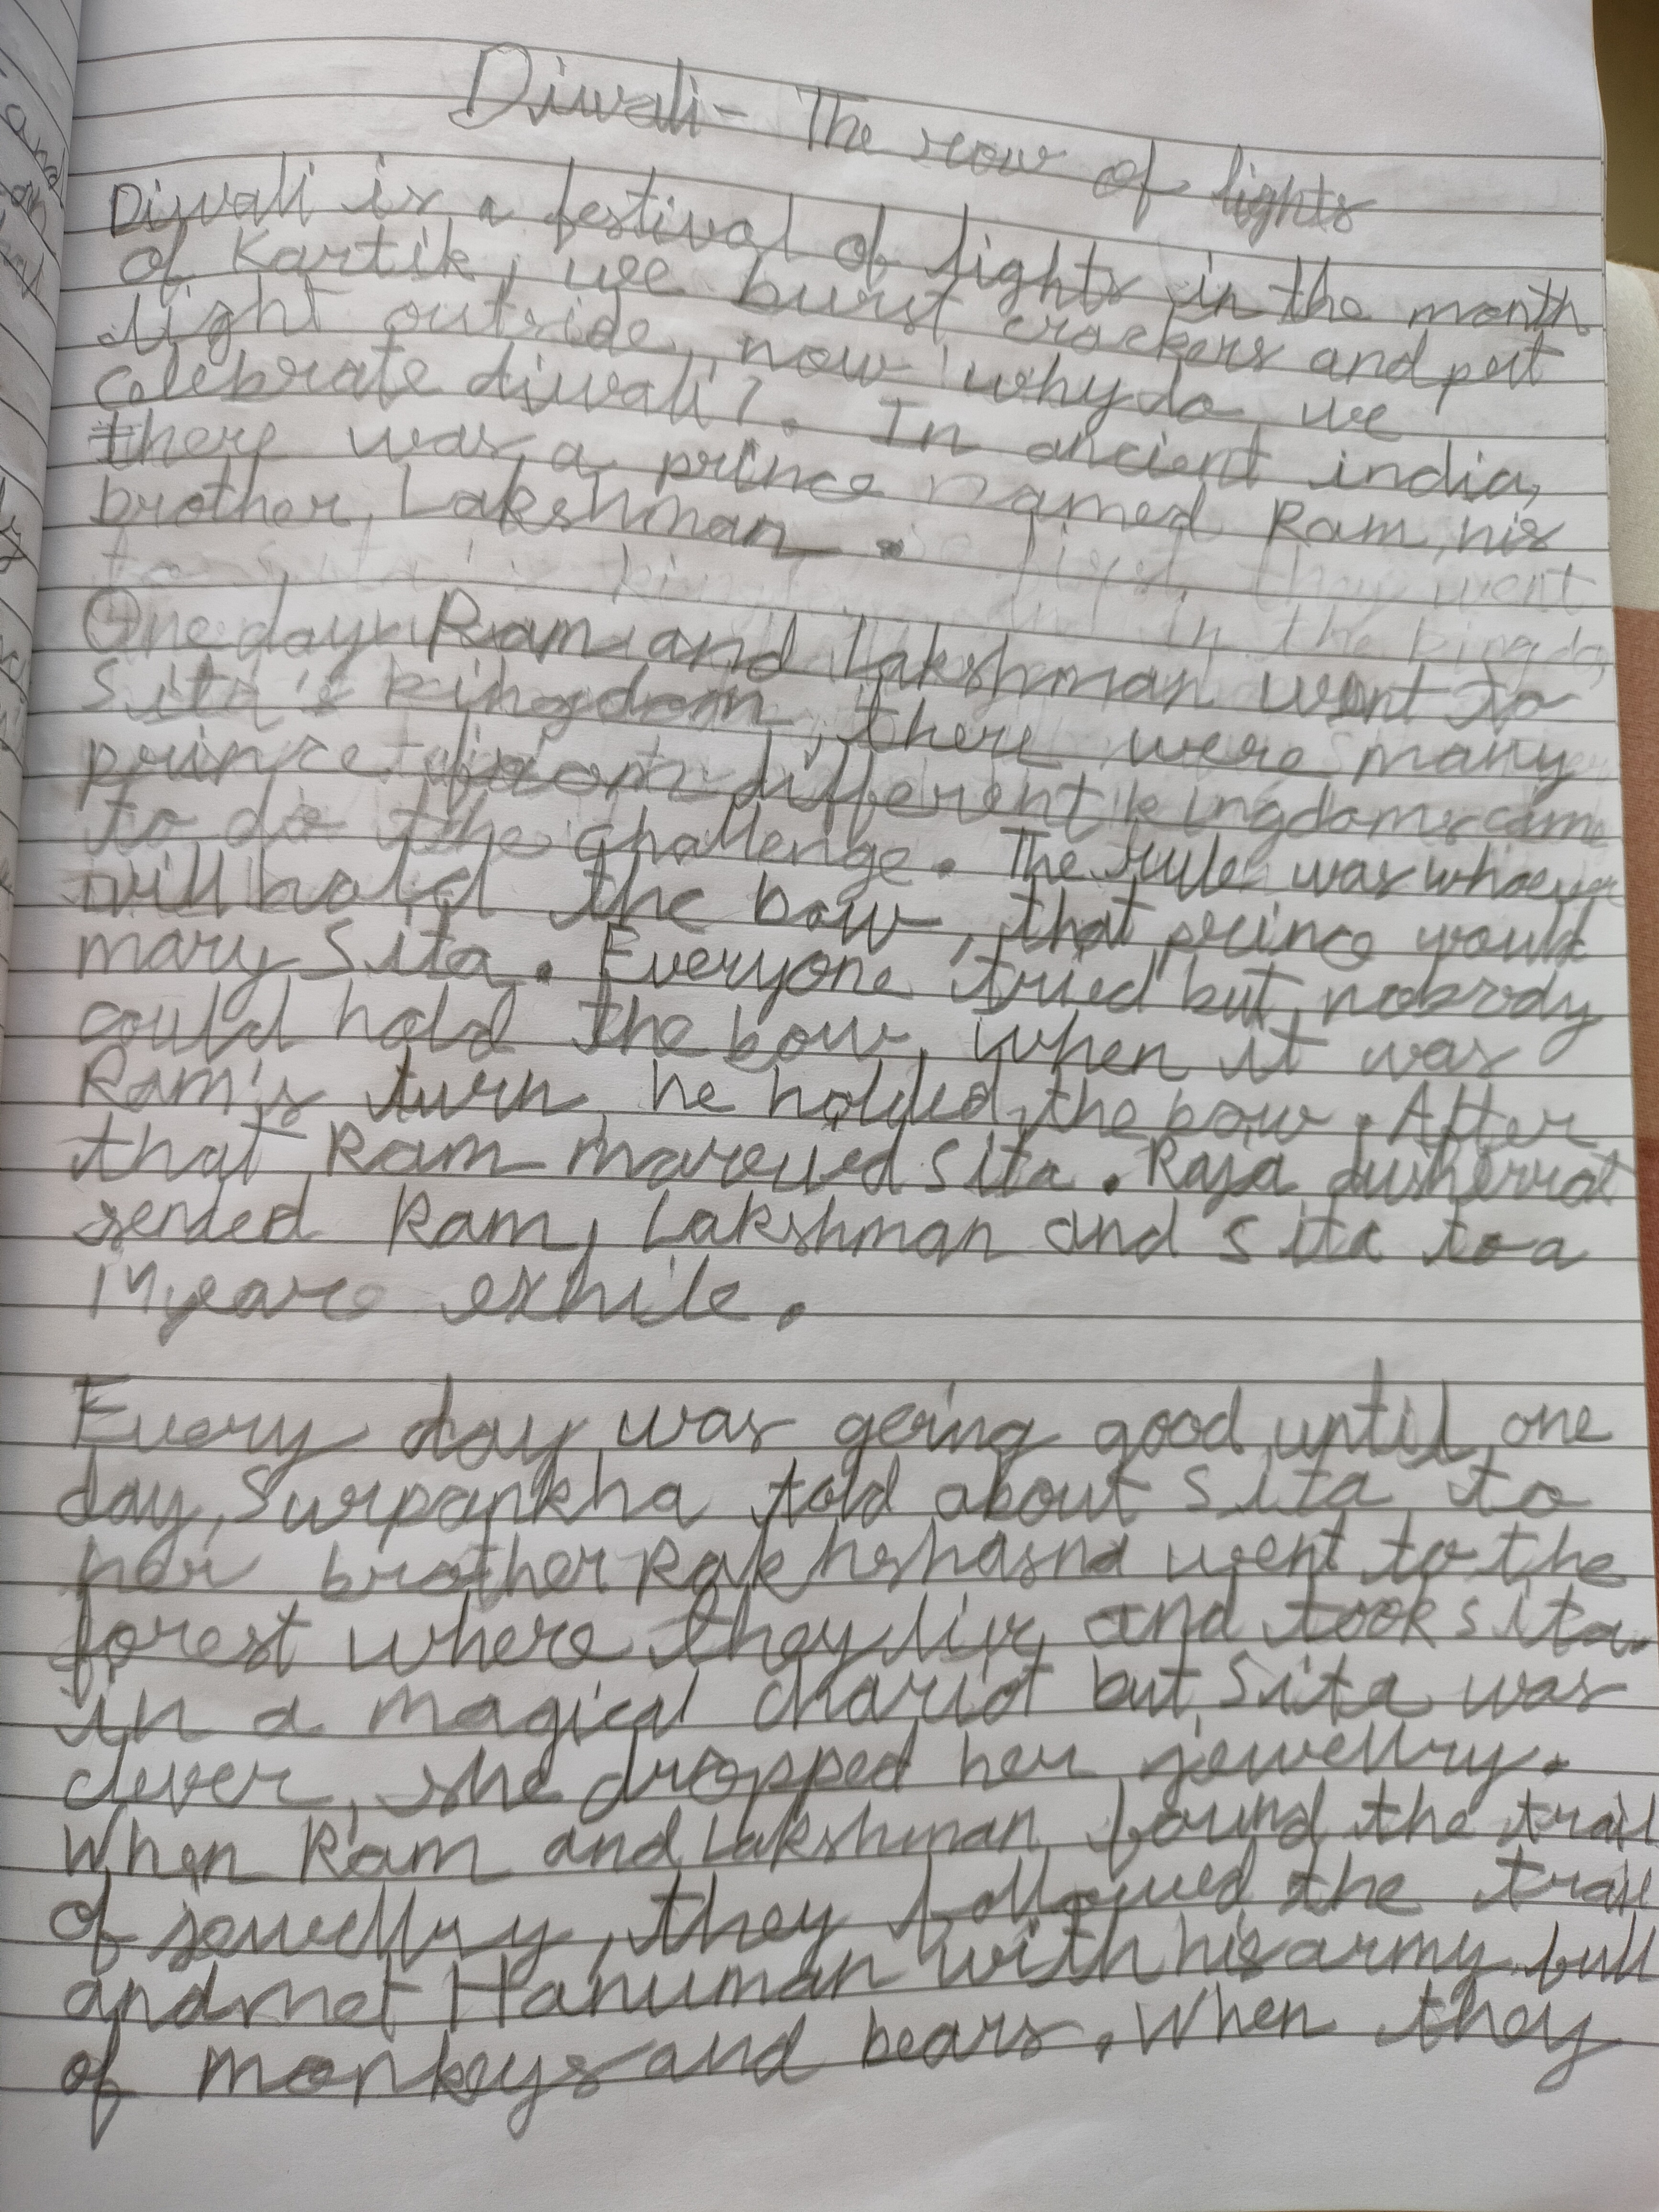 Diwali - The row of lights
Diwali is a festival of lights in the month
of Kartik, we burst crackers and put
light outside, now why do we
celebrate diwali?. In ancient india,
there was a prince named Ram, his
brother, Lakshman.
One day Ram and Lakshman went to
Sita's kingdom, there were many
prince from different kingdoms came
to do the challenge. The rule was whoever
will hold the bow, that prince would
mary Sita. Everyone tried but nobody
could hold the bow, when it was
Ram's turn he holded the bow. After
that Ram Sita. Raja
sended Ram, Lakshman and Sita to a
14 years exhile.
Every day was going good until one
day, Surpankha told about Sita to
her brother went to the
forest where they live and took sita
in a magical chariot but Sita was
clever, she dropped her jewellry.
When Ram and Lakshman found the trail
of jewellry, they followed the trail
and met Hanuman with his army full
of monkeys and bears. When they